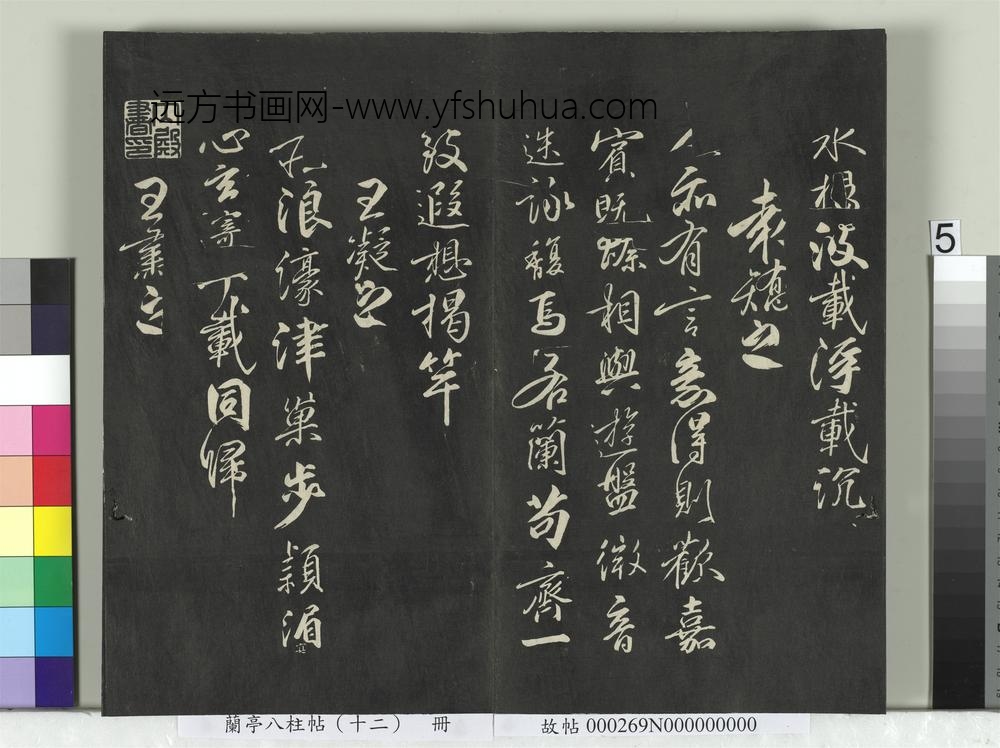 远方书画网-www.yfshuhua.com
水楊波載浮載沉
袁嶠之
人亦有言意得則歡嘉
賓既臻相與遊盤微音
迭詠馥焉若蘭苟齊一
致遐想揭竿
王凝之
莊浪濠津巢步潁湄冥
心玄寄千載同歸
內殿書印
王肅之
5
蘭亭八柱帖（十二） 冊
故帖 000269N000000000